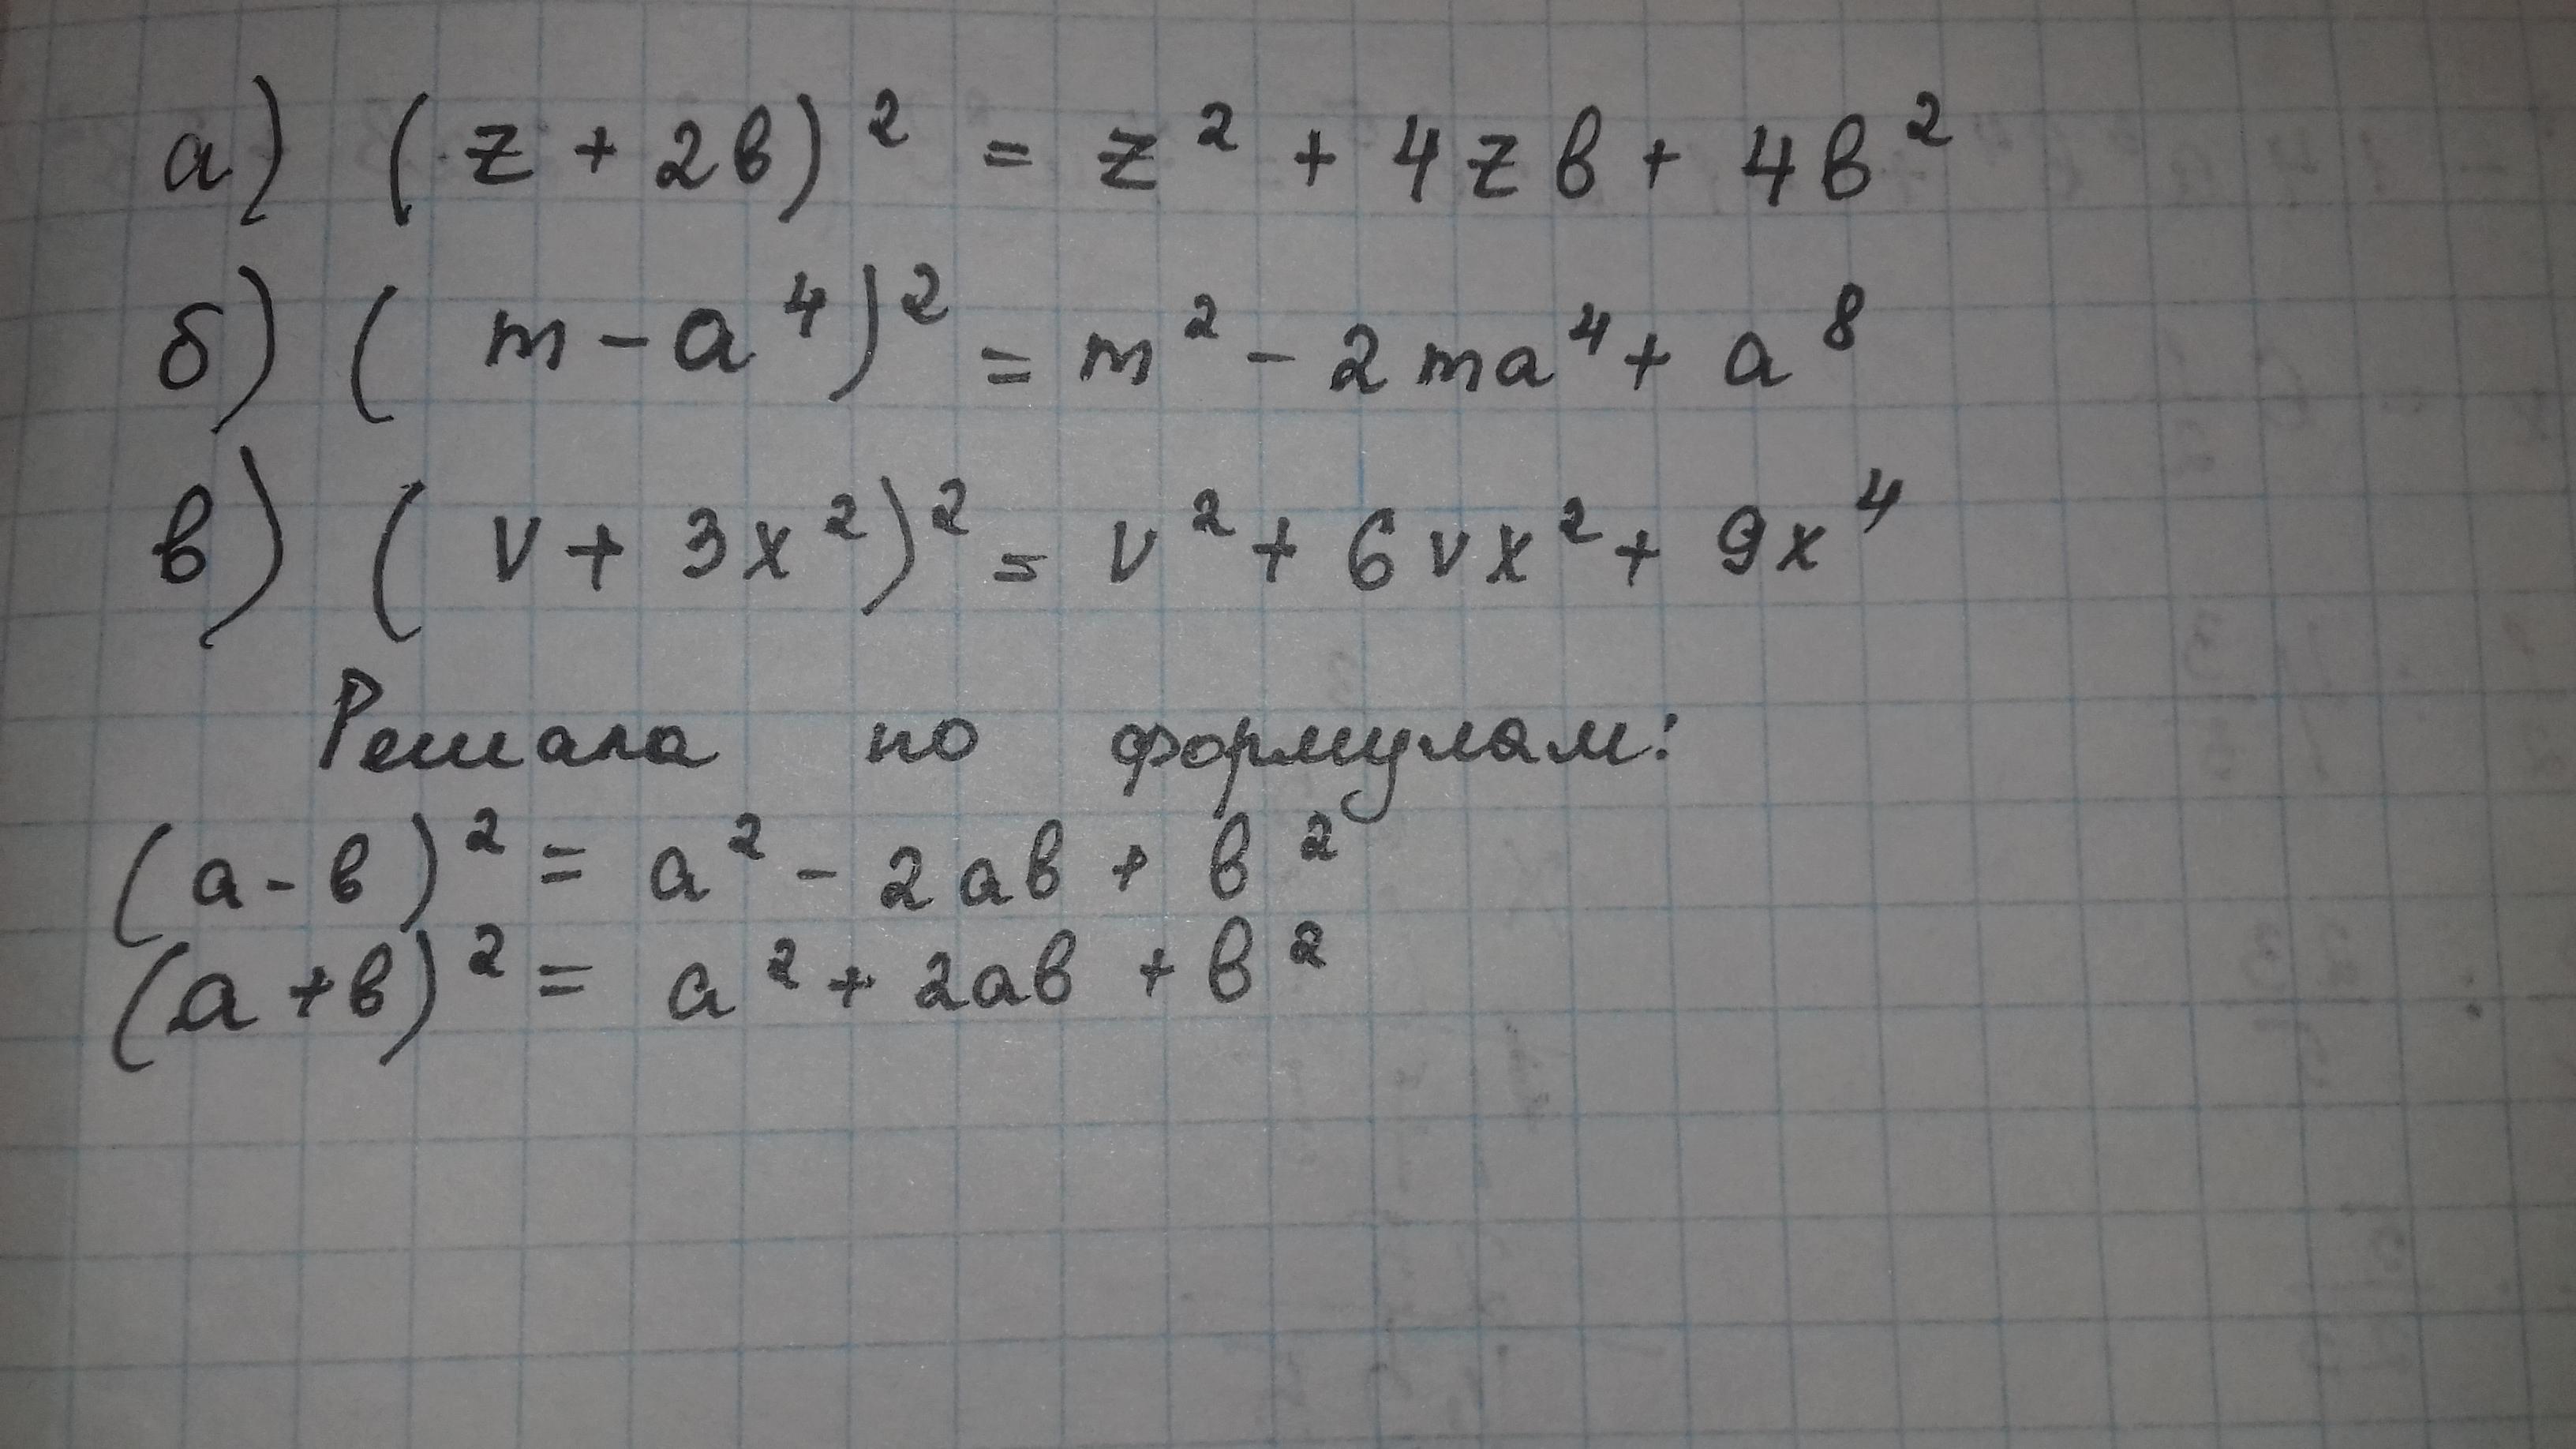 а) (z + 2в)² = z² + 4zв + 4в²
б) (m - a⁴)² = m² - 2ma⁴ + a⁸
в) (v + 3x²)² = v² + 6vx² + 9x⁴
Решала по формулам:
(а - в)² = а² - 2ав + в²
(а + в)² = а² + 2ав + в²